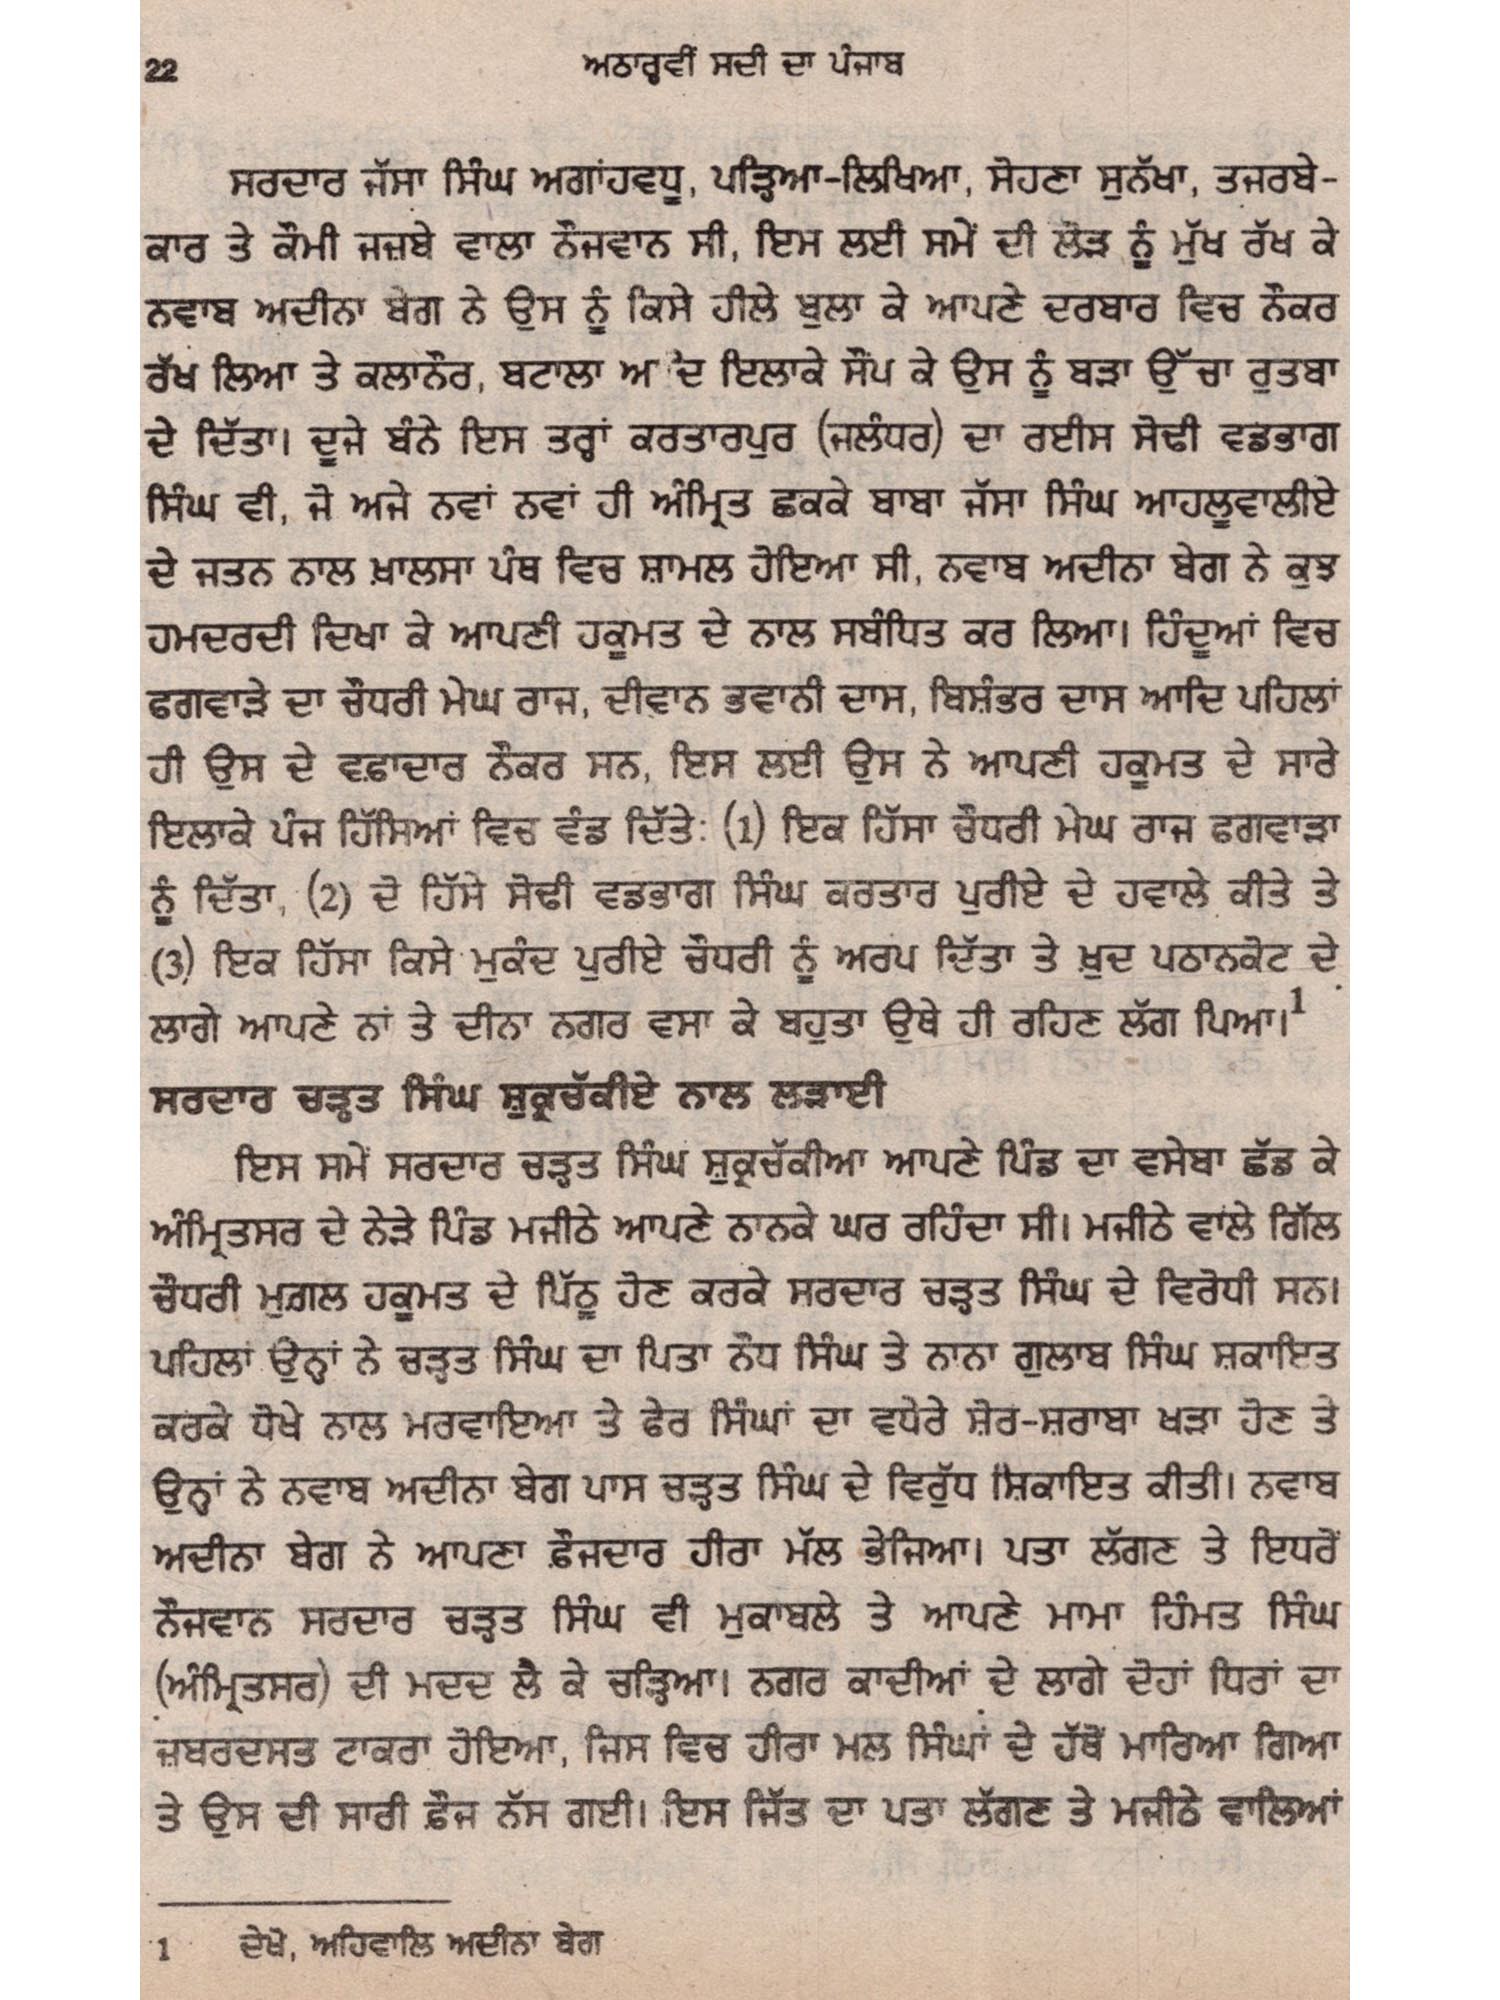 22
ਅਠਾਰ੍ਹਵੀਂ ਸਦੀ ਦਾ ਪੰਜਾਬ
ਸਰਦਾਰ ਜੱਸਾ ਸਿੰਘ ਅਗਾਂਹਵਧੂ, ਪੜ੍ਹਿਆ-ਲਿਖਿਆ, ਸੋਹਣਾ ਸੁਨੱਖਾ, ਤਜਰਬੇ-
ਕਾਰ ਤੇ ਕੌਮੀ ਜਜ਼ਬੇ ਵਾਲਾ ਨੌਜਵਾਨ ਸੀ, ਇਸ ਲਈ ਸਮੇਂ ਦੀ ਲੋੜ ਨੂੰ ਮੁੱਖ ਰੱਖ ਕੇ
ਨਵਾਬ ਅਦੀਨਾ ਬੇਗ ਨੇ ਉਸ ਨੂੰ ਕਿਸੇ ਹੀਲੇ ਬੁਲਾ ਕੇ ਆਪਣੇ ਦਰਬਾਰ ਵਿਚ ਨੌਕਰ
ਰੱਖ ਲਿਆ ਤੇ ਕਲਾਨੌਰ, ਬਟਾਲਾ ਆਦਿ ਇਲਾਕੇ ਸੌਂਪ ਕੇ ਉਸ ਨੂੰ ਬੜਾ ਉੱਚਾ ਰੁਤਬਾ
ਦੇ ਦਿੱਤਾ। ਦੂਜੇ ਬੰਨੇ ਇਸ ਤਰ੍ਹਾਂ ਕਰਤਾਰਪੁਰ (ਜਲੰਧਰ) ਦਾ ਰਈਸ ਸੋਢੀ ਵਡਭਾਗ
ਸਿੰਘ ਵੀ, ਜੋ ਅਜੇ ਨਵਾਂ ਨਵਾਂ ਹੀ ਅੰਮ੍ਰਿਤ ਛਕਕੇ ਬਾਬਾ ਜੱਸਾ ਸਿੰਘ ਆਹਲੂਵਾਲੀਏ
ਦੇ ਜਤਨ ਨਾਲ ਖ਼ਾਲਸਾ ਪੰਥ ਵਿਚ ਸ਼ਾਮਲ ਹੋਇਆ ਸੀ, ਨਵਾਬ ਅਦੀਨਾ ਬੇਗ ਨੇ ਕੁਝ
ਹਮਦਰਦੀ ਦਿਖਾ ਕੇ ਆਪਣੀ ਹਕੂਮਤ ਦੇ ਨਾਲ ਸਬੰਧਿਤ ਕਰ ਲਿਆ। ਹਿੰਦੂਆਂ ਵਿਚ
ਫਗਵਾੜੇ ਦਾ ਚੌਧਰੀ ਮੇਘ ਰਾਜ, ਦੀਵਾਨ ਭਵਾਨੀ ਦਾਸ, ਬਿਸ਼ੰਭਰ ਦਾਸ ਆਦਿ ਪਹਿਲਾਂ
ਹੀ ਉਸ ਦੇ ਵਫ਼ਾਦਾਰ ਨੌਕਰ ਸਨ, ਇਸ ਲਈ ਉਸ ਨੇ ਆਪਣੀ ਹਕੂਮਤ ਦੇ ਸਾਰੇ
ਇਲਾਕੇ ਪੰਜ ਹਿੱਸਿਆਂ ਵਿਚ ਵੰਡ ਦਿੱਤੇ: (1) ਇਕ ਹਿੱਸਾ ਚੌਧਰੀ ਮੇਘ ਰਾਜ ਫਗਵਾੜਾ
ਨੂੰ ਦਿੱਤਾ, (2) ਦੋ ਹਿੱਸੇ ਸੋਢੀ ਵਡਭਾਗ ਸਿੰਘ ਕਰਤਾਰ ਪੁਰੀਏ ਦੇ ਹਵਾਲੇ ਕੀਤੇ ਤੇ
(3) ਇਕ ਹਿੱਸਾ ਕਿਸੇ ਮੁਕੰਦ ਪੁਰੀਏ ਚੌਧਰੀ ਨੂੰ ਅਰਪ ਦਿੱਤਾ ਤੇ ਖ਼ੁਦ ਪਠਾਨਕੋਟ ਦੇ
ਲਾਗੇ ਆਪਣੇ ਨਾਂ ਤੇ ਦੀਨਾ ਨਗਰ ਵਸਾ ਕੇ ਬਹੁਤਾ ਉਥੇ ਹੀ ਰਹਿਣ ਲੱਗ ਪਿਆ।1
ਸਰਦਾਰ ਚੜ੍ਹਤ ਸਿੰਘ ਸ਼ੁਕ੍ਰਚੱਕੀਏ ਨਾਲ ਲੜਾਈ
ਇਸ ਸਮੇਂ ਸਰਦਾਰ ਚੜ੍ਹਤ ਸਿੰਘ ਸ਼ੁਕ੍ਰਚੱਕੀਆ ਆਪਣੇ ਪਿੰਡ ਦਾ ਵਸੇਬਾ ਛੱਡ ਕੇ
ਅੰਮ੍ਰਿਤਸਰ ਦੇ ਨੇੜੇ ਪਿੰਡ ਮਜੀਠੇ ਆਪਣੇ ਨਾਨਕੇ ਘਰ ਰਹਿੰਦਾ ਸੀ। ਮਜੀਠੇ ਵਾਲੇ ਗਿੱਲ
ਚੌਧਰੀ ਮੁਗ਼ਲ ਹਕੂਮਤ ਦੇ ਪਿੱਠੂ ਹੋਣ ਕਰਕੇ ਸਰਦਾਰ ਚੜ੍ਹਤ ਸਿੰਘ ਦੇ ਵਿਰੋਧੀ ਸਨ।
ਪਹਿਲਾਂ ਉਨ੍ਹਾਂ ਨੇ ਚੜ੍ਹਤ ਸਿੰਘ ਦਾ ਪਿਤਾ ਨੌਧ ਸਿੰਘ ਤੇ ਨਾਨਾ ਗੁਲਾਬ ਸਿੰਘ ਸ਼ਕਾਇਤ
ਕਰਕੇ ਧੋਖੇ ਨਾਲ ਮਰਵਾਇਆ ਤੇ ਫੇਰ ਸਿੰਘਾਂ ਦਾ ਵਧੇਰੇ ਸ਼ੋਰ-ਸ਼ਰਾਬਾ ਖੜਾ ਹੋਣ ਤੇ
ਉਨ੍ਹਾਂ ਨੇ ਨਵਾਬ ਅਦੀਨਾ ਬੇਗ ਪਾਸ ਚੜ੍ਹਤ ਸਿੰਘ ਦੇ ਵਿਰੁੱਧ ਸ਼ਿਕਾਇਤ ਕੀਤੀ। ਨਵਾਬ
ਅਦੀਨਾ ਬੇਗ ਨੇ ਆਪਣਾ ਫ਼ੌਜਦਾਰ ਹੀਰਾ ਮੱਲ ਭੇਜਿਆ। ਪਤਾ ਲੱਗਣ ਤੇ ਇਧਰੋਂ
ਨੌਜਵਾਨ ਸਰਦਾਰ ਚੜ੍ਹਤ ਸਿੰਘ ਵੀ ਮੁਕਾਬਲੇ ਤੇ ਆਪਣੇ ਮਾਮਾ ਹਿੰਮਤ ਸਿੰਘ
(ਅੰਮ੍ਰਿਤਸਰ) ਦੀ ਮਦਦ ਲੈ ਕੇ ਚੜ੍ਹਿਆ। ਨਗਰ ਕਾਦੀਆਂ ਦੇ ਲਾਗੇ ਦੋਹਾਂ ਧਿਰਾਂ ਦਾ
ਜ਼ਬਰਦਸਤ ਟਾਕਰਾ ਹੋਇਆ, ਜਿਸ ਵਿਚ ਹੀਰਾ ਮਲ ਸਿੰਘਾਂ ਦੇ ਹੱਥੋਂ ਮਾਰਿਆ ਗਿਆ
ਤੇ ਉਸ ਦੀ ਸਾਰੀ ਫ਼ੌਜ ਨੱਸ ਗਈ। ਇਸ ਜਿੱਤ ਦਾ ਪਤਾ ਲੱਗਣ ਤੇ ਮਜੀਠੇ ਵਾਲਿਆਂ
1 ਦੇਖੋ, ਅਹਿਵਾਲਿ ਅਦੀਨਾ ਬੇਗ